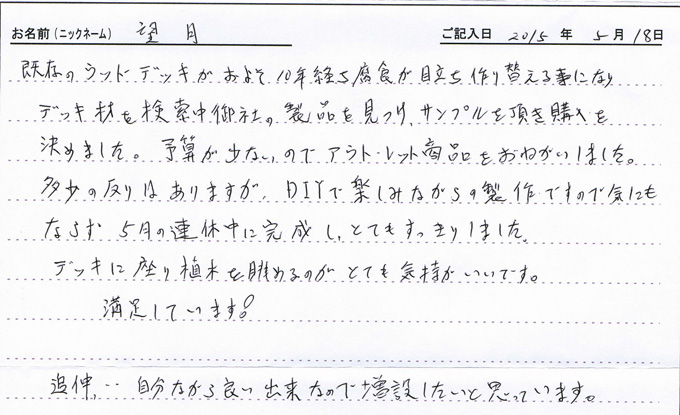 お名前(ニックネーム) 望月 ご記入日 2015年 5月 18日
既存のウッドデッキがおよそ10年経ち腐食が目立ち作り替える事になり
デッキ材を検索中御社の製品を見つけ、サンプルを頂き購入を
決めました。予算が少ないのでアウトレット商品をおねがいしました。
多少の反りはありますが、DIYで楽しみながらの製作ですので気にも
ならず5月の連休中に完成し、とてもすっきりしました。
デッキに座り植木を眺めるのがとても気持がいいです。
満足しています!
追伸… 自分ながら良い出来なので増設したいと思っています。